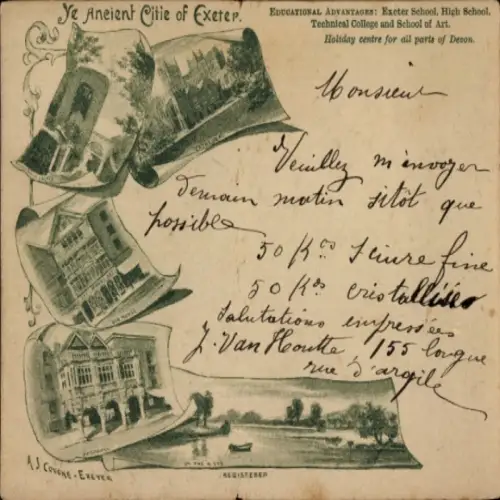 Ye Ancient Citie of Exeter.
EDUCATIONAL ADVANTAGES: Exeter School, High School,
Technical College and School of Art.
Holiday centre for all parts of Devon.
Monsieur
Veuillez m'envoyer
demain matin sitôt que
possible
50 Kos fine
50 Kos cristallisés
Salutations empressées
J. Van Houtte, 155 longue
rue d'argile
A. J. EXETER
REGISTERED